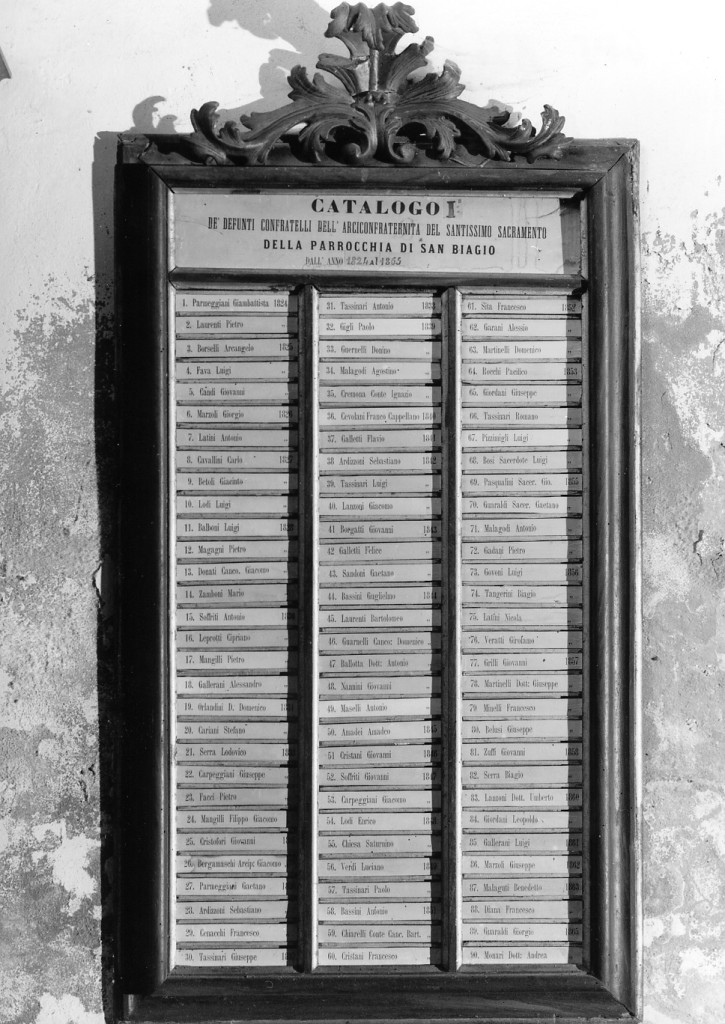 CATALOGO I
DE' DEFUNTI CONFRATELLI DELL'ARCICONFRATERNITA DEL SANTISSIMO SACRAMENTO
DELLA PARROCCHIA DI SAN BIAGIO
DALL'ANNO 1824 Al 1865
1. Parmeggiani Giambattista 1824
2. Laurenti Pietro „
3. Borselli Arcangelo
4. Fava Luigi „
5. Candi Giovanni „
6. Marzoli Giorgio
7. Latini Antonio „
8. Cavallini Carlo
9. Betoli Giacinto „
10. Lodi Luigi „
11. Balboni Luigi
12. Magagni Pietro „
13. Donati Canco. Giacomo „
14. Zamboni Mario „
15. Soffriti Antonio
16. Leprotti Cipriano „
17. Mangilli Pietro „
18. Gallerani Alessandro „
19. Orlandini D. Domenico
20. Cariani Stefano „
21. Serra Lodovico
22. Carpeggiani Giuseppe
23. Pacci Pietro
24. Mangilli Filippo Giacomo
25. Cristofori Giovanni
26. Bergamaschi Arcip: Giacomo
27. Parmeggiani Gaetano
28. Ardizoni Sebastiano
29. Cenacchi Francesco
30. Tassinari Giuseppe
31. Tassinari Antonio
32. Gigli Paolo 1839
33. Guernelli Donino „
34. Malagodi Agostino „
35. Cremona Conte Ignazio „
36. Cevolani Franco Cappellano 1840
37. Galletti Flavio 1841
38 Ardizoni Sebastiano 1842
39. Tassinari Luigi „
40. Lanzoni Giacomo „
41 Borgatti Giovanni 1843
42 Galletti Felice „
43. Sandoni Gaetano „
44. Bassini Guglielmo 1844
45. Laurenti Bartolomeo „
46. Guarnelli Canco: Domenico „
47 Ballotta Dott: Antonio „
48. Nannini Giovanni „
49. Maselli Antonio „
50. Amadei Amadeo 1845
51 Cristani Giovanni 1846
52. Soffriti Giovanni 1847
53. Carpeggiani Giacomo „
54. Lodi Enrico
55. Chiesa Saturnino „
56. Verdi Luciano
57. Tassinari Paolo „
58. Bassini Antonio
59. Chiarelli Conte Canc. Bart.
60. Cristani Francesco
61. Sita Francesco 1852
62. Garani Alessio „
63. Martinelli Domenico „
64. Rocchi Pacifico 1853
65. Giordani Giuseppe „
66. Tassinari Romano „
67. Pizzinigli Luigi „
68. Bosi Sacerdote Luigi „
69. Pasqualini Sacer. Gio. 1855
70. Guaraldi Sacer. Gaetano „
71. Malagodi Antonio „
72. Gadani Pietro „
73. Govoni Luigi 1856
74. Tangerini Biagio „
75. Latini Nicola „
76. Veratti Girofano „
77. Grilli Giovanni 1857
78. Martinelli Dott: Giuseppe „
79 Minelli Francesco „
80. Belusi Giuseppe „
81. Zuffi Giovanni 1858
82. Serra Biagio „
83. Lanzoni Dott. Umberto 1860
84. Giordani Leopolda „
85. Gallerani Luigi 1861
86. Marzoli Giuseppe 1862
87. Malaguti Benedetto 1863
88. Diana Francesco „
89. Guaraldi Giorgio 1865
90. Monari Dott: Andrea „